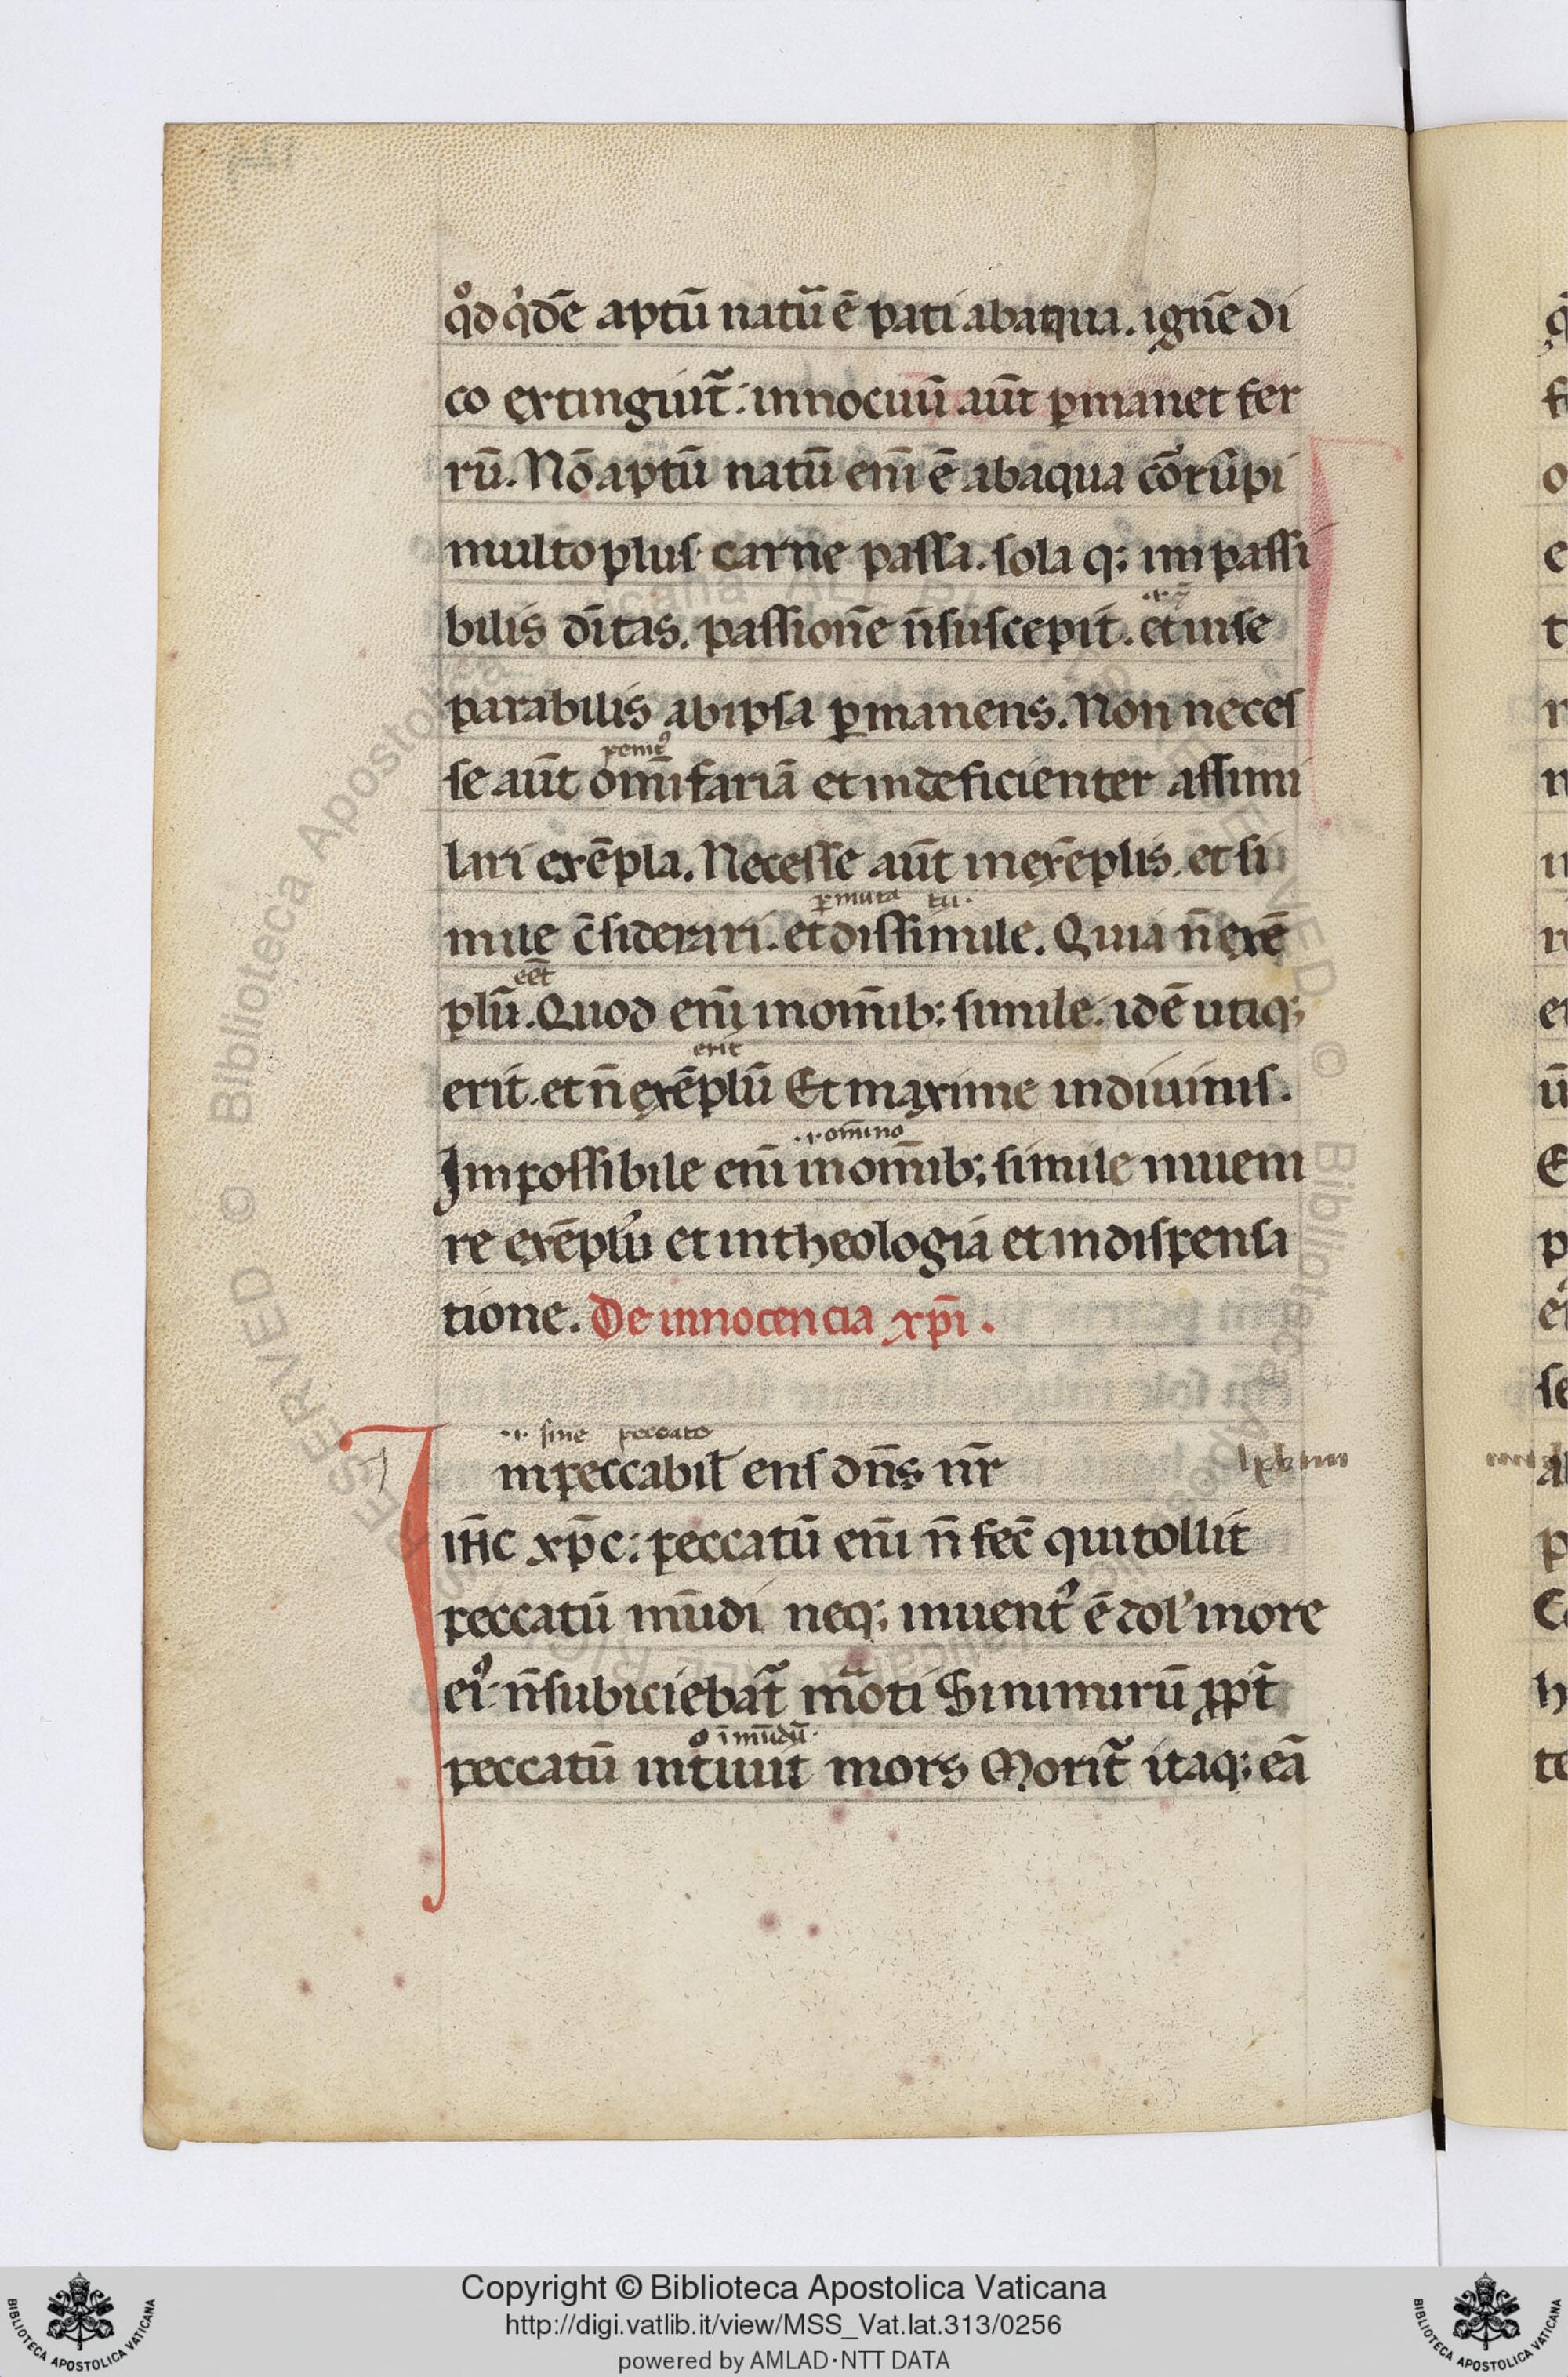 qͦd qͥdē aptū natū ē pati abaqua. ignē di
co extinguit᷑: innocuū aūt ꝑmanet fer
rū. Nō aptū natū eni̅ ē abaqua cōrūpi
multoplus carne passa. sola qꝫ impassi
bilis di̅tas. passionē n̅ suscepit. et inse
parabilis abipsa ꝑmanens. Non neces
penitꝰ
se aūt om̅ifariā et indeficienter assimi
lari exēpla. Necesse aūt inexēplis. et si
ꝑmuta tū.
mile c̅siderari. et dissimile. Quia n̅ exē
eēt
plū. Quod eni̅ inom̅ibꝫ simile. idē utiqꝫ
erit
erit. et n̅ exēplū Et maxime indiuinis.
.i. om̅ino
Impossibile eni̅ inom̅ibꝫ simile inueni
re exēplū et in theologia et indispensa
tione. De innocencia xp̅i.
.i. sine peccato
Inpeccabil̕ ens dn̅s nr̅
ih̅c xp̅c: peccatū eni̅ n̅ fec̅ qui tollit
peccatū mūdi neqꝫ inuentꝰ ē dol̕ inore
eiꝰ n̅ subiciebat᷑ m̅oti Sinimirū ꝓpt̅
o i̅ mūdū.
peccatū int̅uit mors Morit᷑ itaqꝫ eā
Copyright © Biblioteca Apostolica Vaticana
http://digi.vatlib.it/view/MSS_Vat.lat.313/0256
powered by AMLAD·NTT DATA
BIBLIOTECA APOSTOLICA VATICANA
BIBLIOTECA APOSTOLICA VATICANA